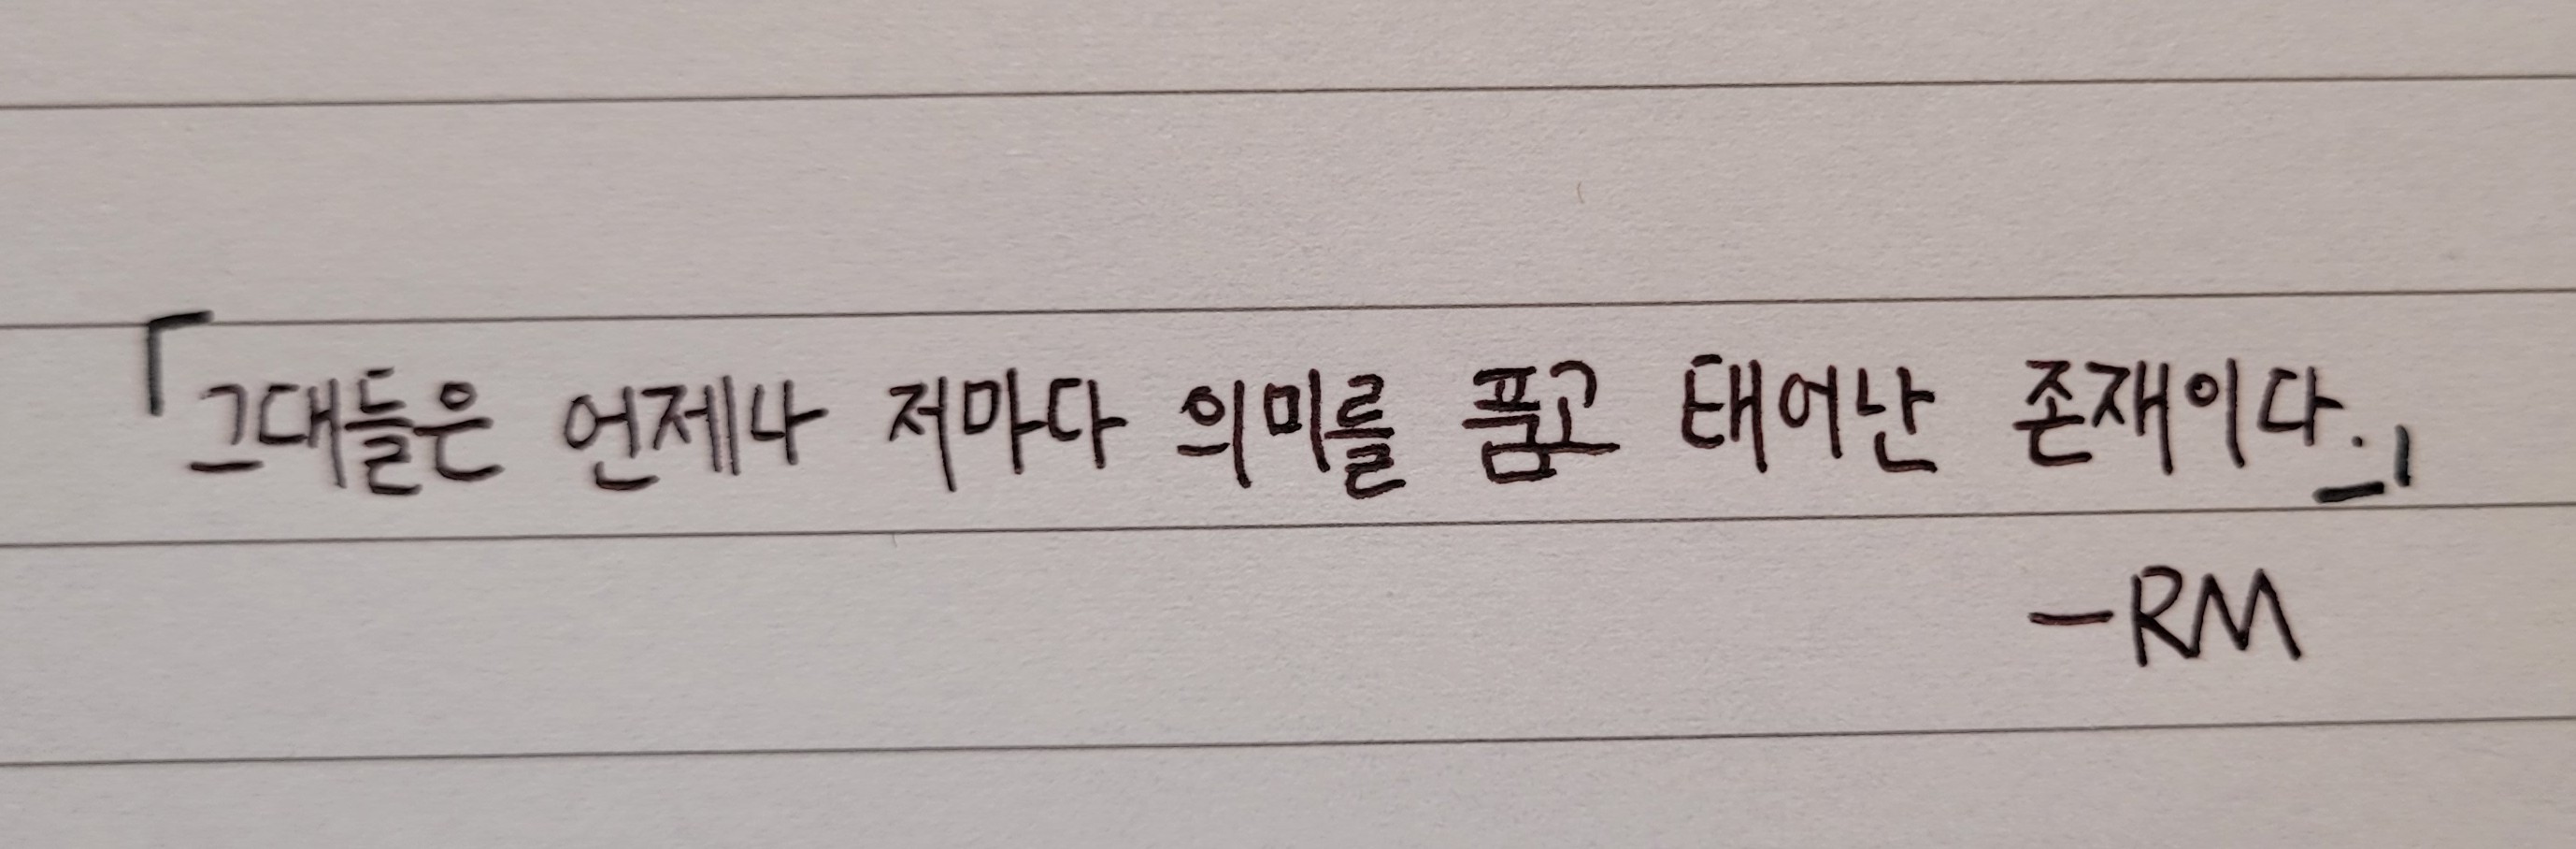 「그대들은 언제나 저마다 의미를 품고 태어난 존재이다.」
-RM